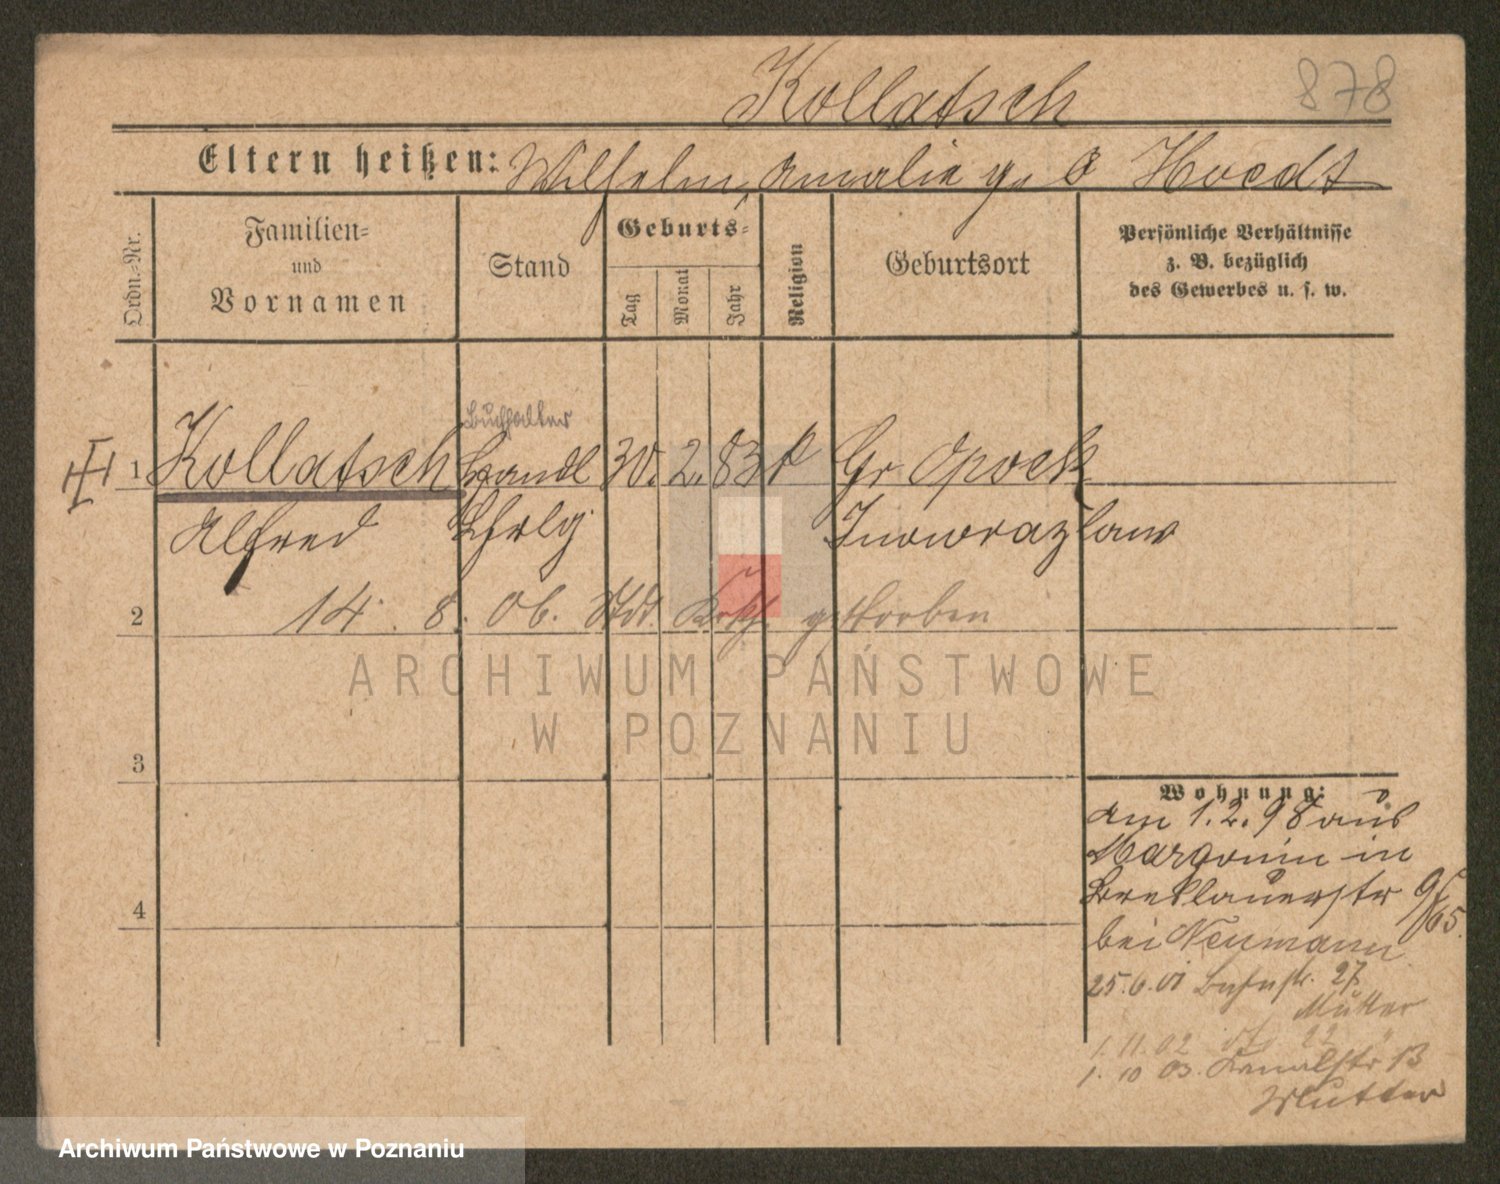 878
Kollatsch
Eltern heißen: Wilhelm, Amalie g. Hoedt
Ordn.-Nr.
Familien-
und
Vornamen
Stand
Geburts-
Tag
Monat
Jahr
Religion
Geburtsort
Persönliche Verhältnisse
z. B. bezüglich
des Gewerbes u. s. w.
Buchhalter
1 Kollatsch Handl 30. 2. 83 Gr Opock
Alfred Lhrlg Inowrazlaw
2 14. 8. 06. gestorben
3
4
ARCHIWUM PAŃSTWOWE
W POZNANIU
Wohnung:
am 1.2.98 aus
Margonin in
Breslauerstr 9
bei Neumann
25.6.01 27
Mutter
1. 11. 02 22
1. 10 03. Kanalstr 13
Mutter
Archiwum Państwowe w Poznaniu